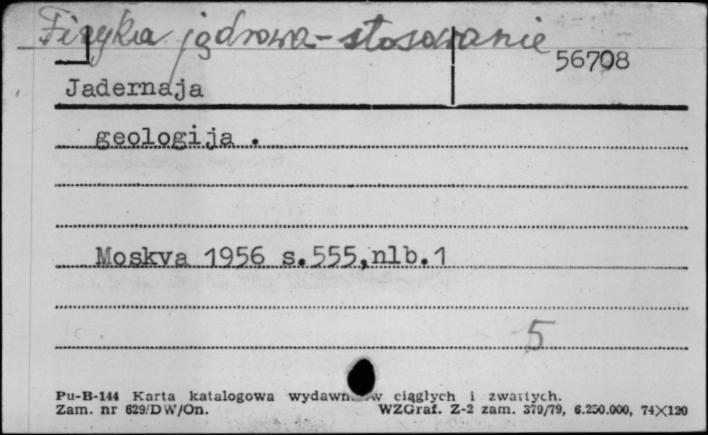 Fizyka jądrowa - stosowanie
56708
Jadernaja
geologija .
Moskva 1956 s.555,nlb.1
5
Pu-B-144 Karta katalogowa ciągłych i zwartych.
Zam. nr 629/DW/On. WZGraf. Z-2 zam. 379/79, 6.250.000, 74×120